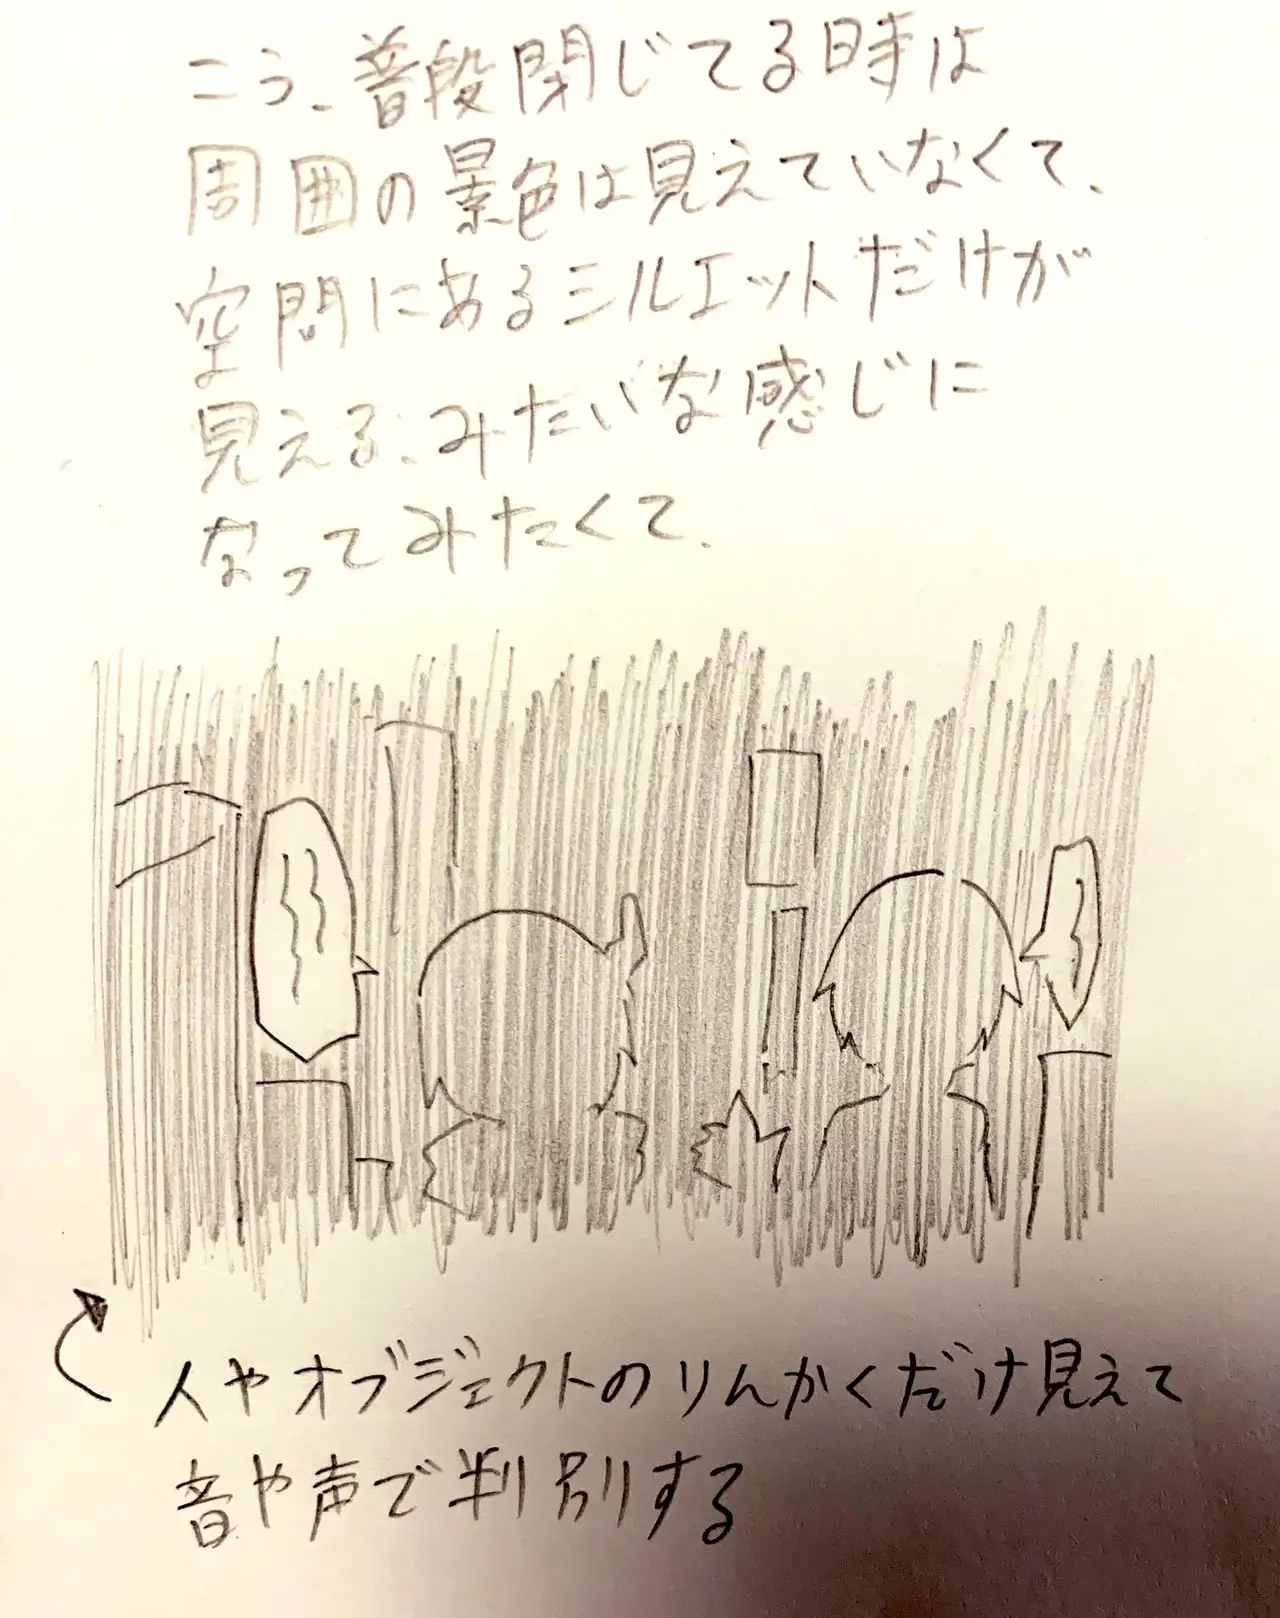 こう、普段閉じてる時は
周囲の景色は見えていなくて、
空間にあるシルエットだけが
見える、みたいな感じに
なってみたくて、
人やオブジェクトのりんかくだけ見えて
音や声で判別する